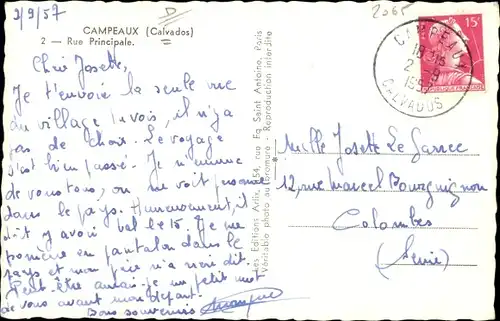 2/9/57
D
2065
CAMPEAUX (Calvados)
2 — Rue Principale.
Chère Josette,
Je t'envoie la seule vue
du village tu vois, il n'y a
pas de choix. Le voyage
s'est bien passé. Je m'ennuie
de vous tous, on ne voit personne
dans le pays. Heureusement, il
doit y avoir bal le 15. Je me
promène en pantalon dans le
pays et mon père n'a rien dit.
Peut-être aurai-je un petit mot
de vous avant mon départ.
Bons souvenirs
Les Editions Artis, 54, rue Fg Saint Antoine, Paris
Véritable photo au Bromure - Reproduction interdite
CAMPEAUX
2 - 9
CALVADOS
15F
Mlle Josette Le Garrec
12, rue Marcel Bourguignon
Colombes
(Seine)